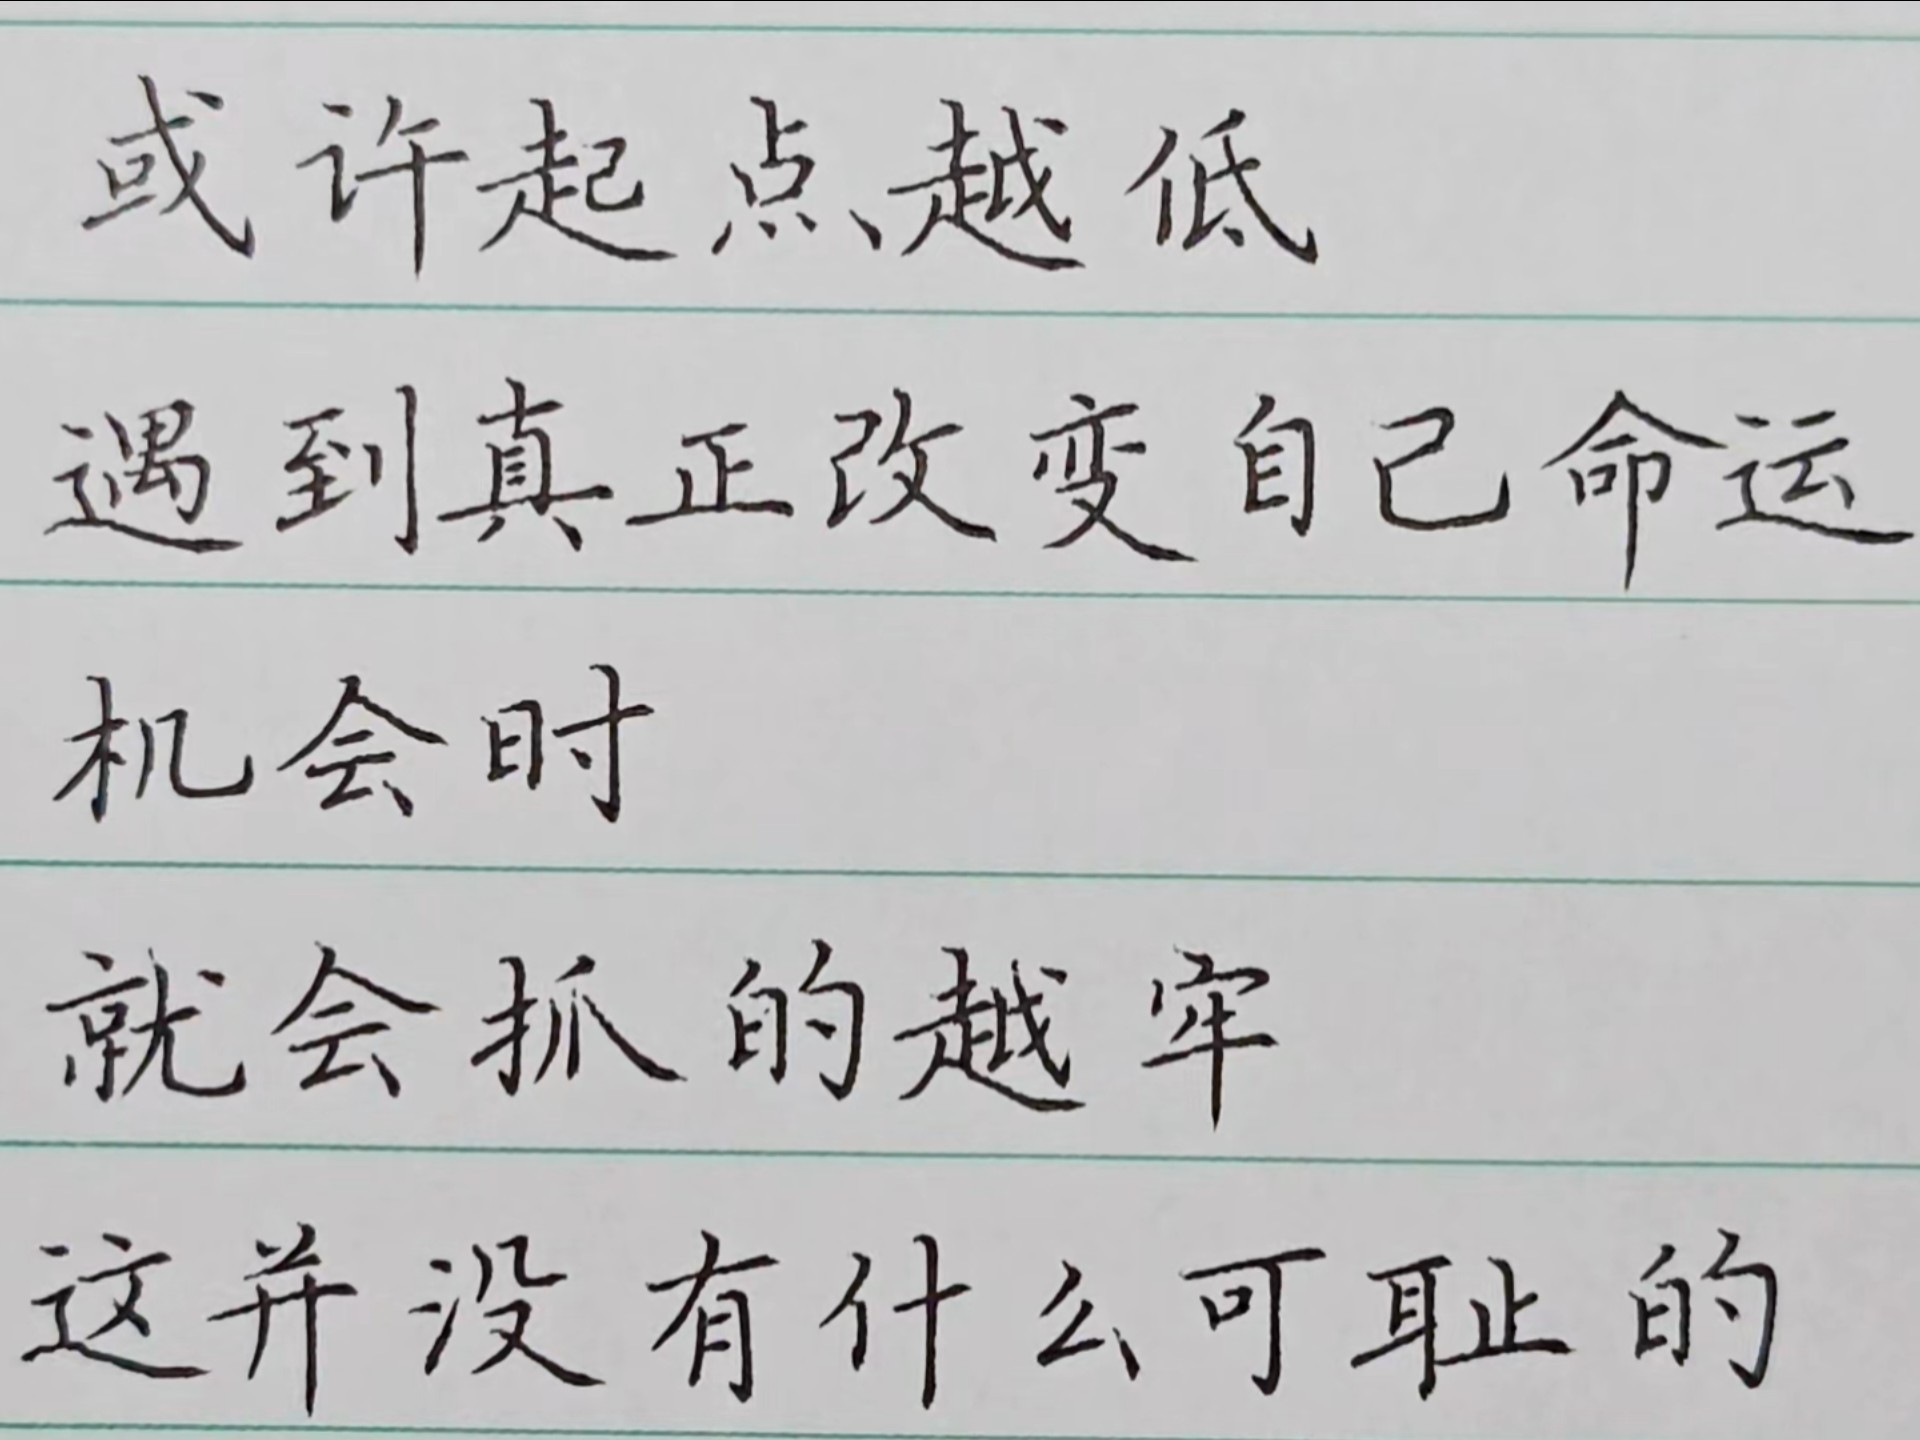 或许起点越低
遇到真正改变自己命运
机会时
就会抓的越牢
这并没有什么可耻的